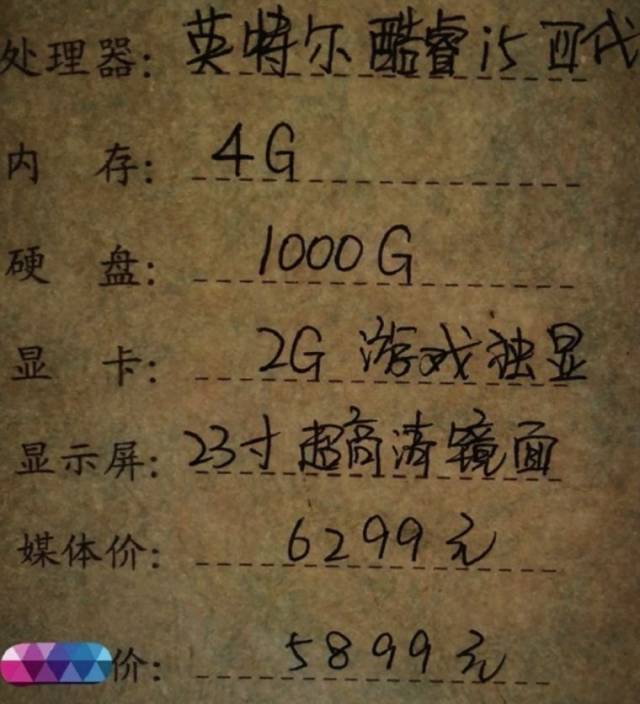 处理器: 英特尔酷睿i5四代
内存: 4G
硬盘: 1000G
显卡: 2G 游戏独显
显示屏: 23寸超高清镜面
媒体价: 6299元
价: 5899元